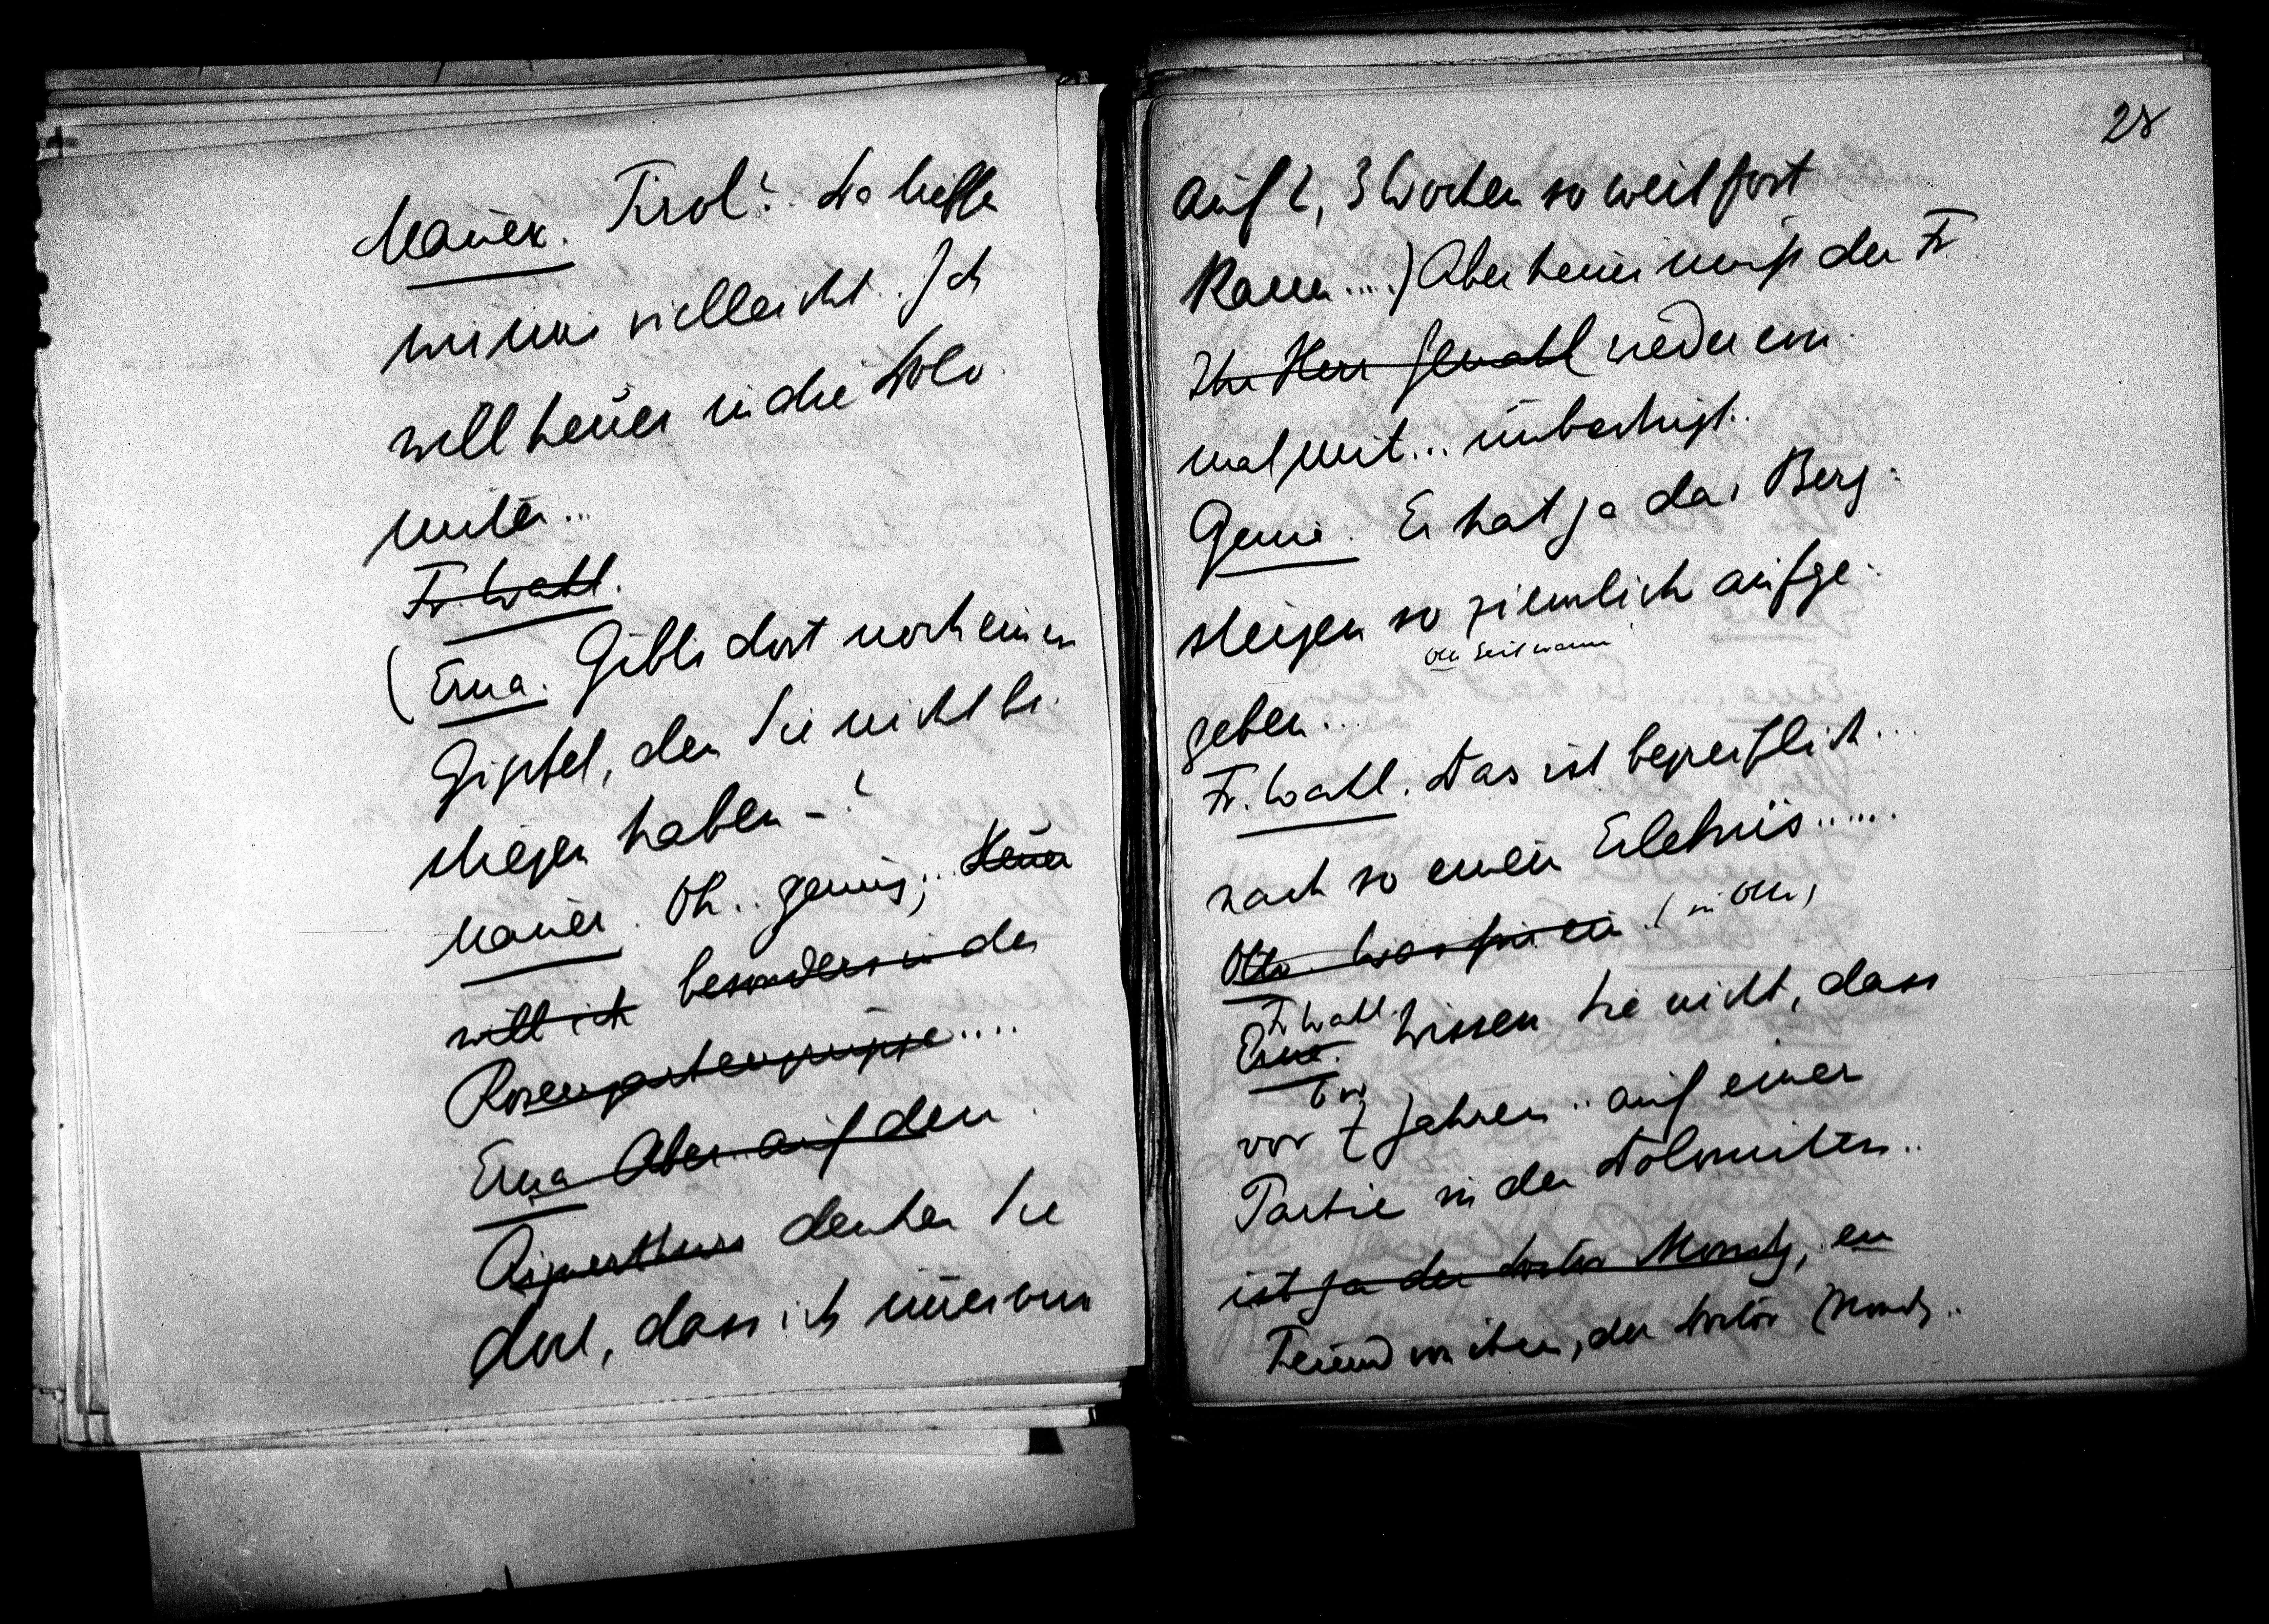 Mauer. Tirol? Da treffe
wir uns vielleicht.. Ich
will heuer in die Dolo-
miten...
Fr. Wahl.
(Erna. Gibts dort noch einen
Gipfel, den Sie nicht be-
stiegen haben –?
Mauer. Oh.. genug;.. Heuer
will ich besonders in der
Rosengartengruppe.....
Erna Aber auf den
Aignerthurm denken Sie
dort, dass ich nur
28
auf 2, 3 Wochen so weit fort
kann.....) Aber heuer muss der Fr
Ihr Herr Gemahl wieder ein-
mal mit... unbedingt..
Genia. Er hat ja das Berg-
steigen so ziemlich aufge-
Otto
geben...
Fr. Wahl. Das ist begreiflich...
nach so einem Erlebnis......
Otto. Was für ein (zu Otto)
Fr Wahl.
Erna. Wissen Sie nicht, dass
vor 7 Jahren.. auf einer
Partie in den Dolomiten..
ist ja der Doctor, ein
Freund von ihm, der Doctor